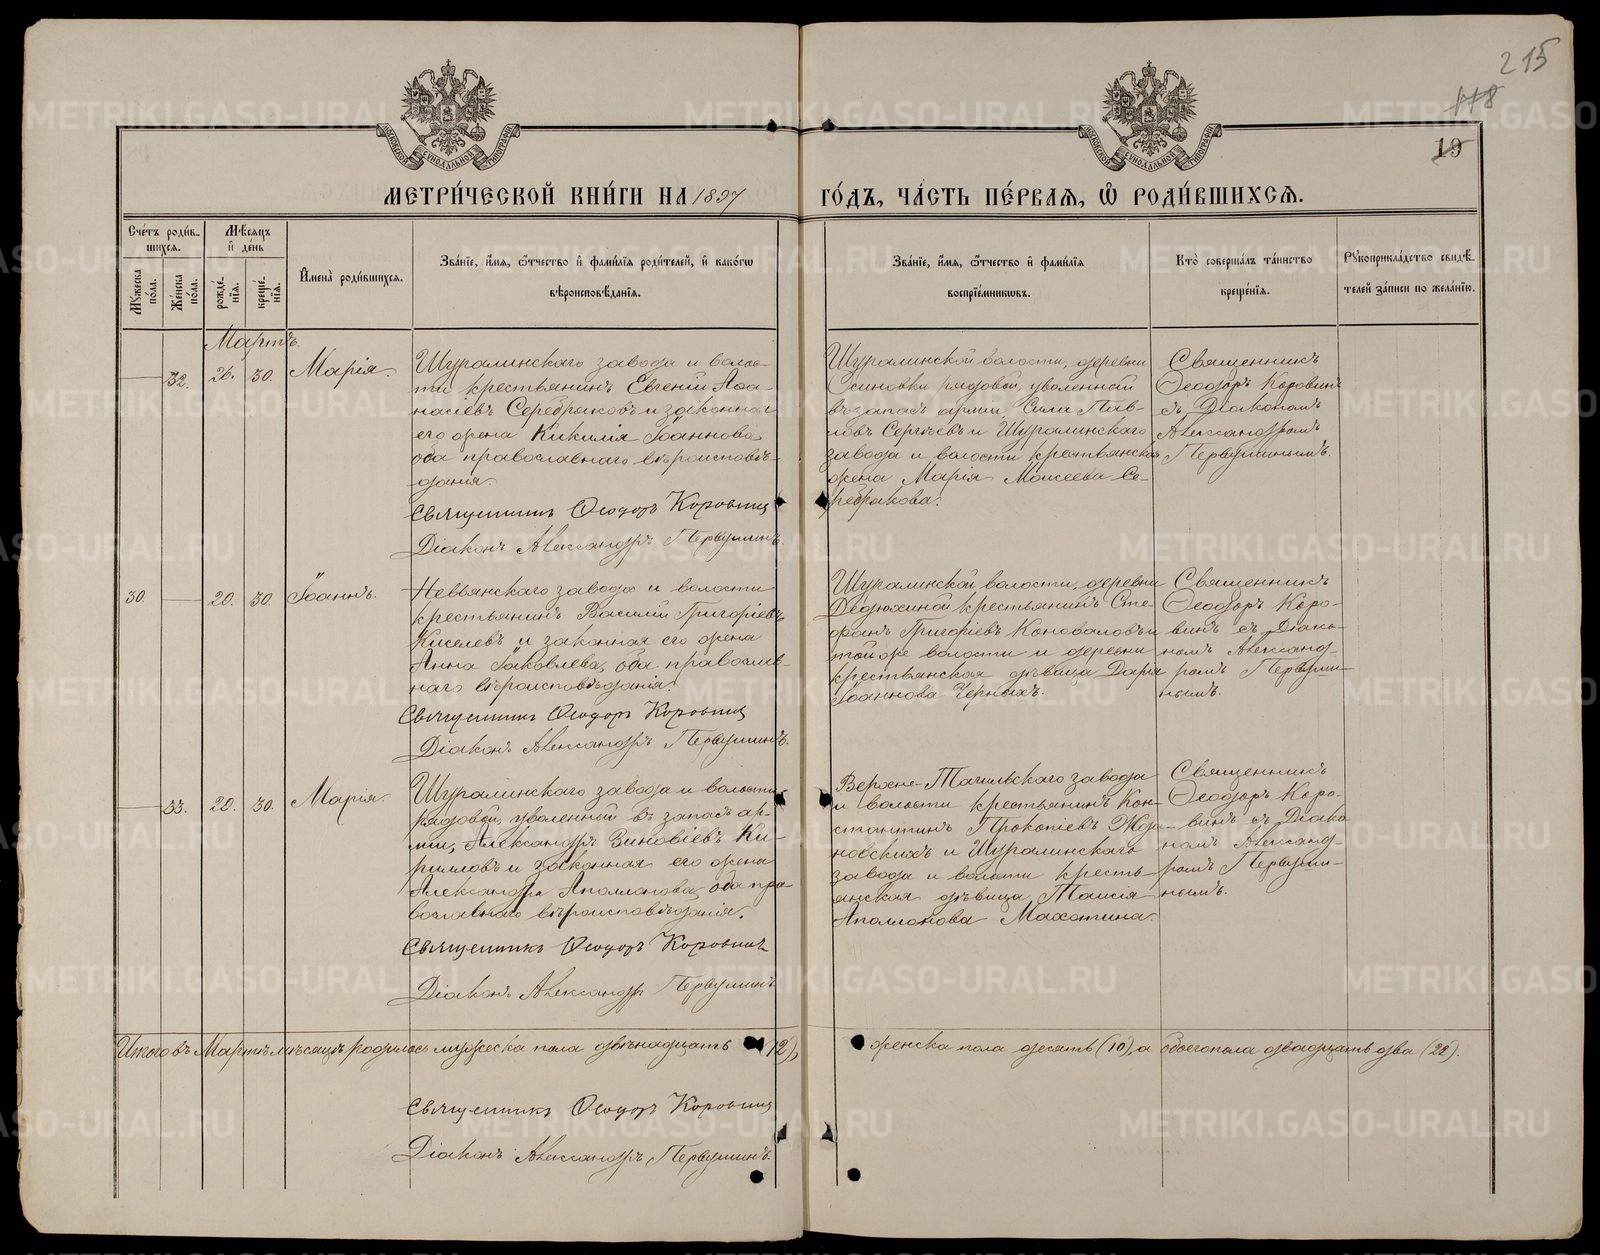 215
118
19
МЕТРИ́ЧЕСКОЙ КНИ́ГИ НА 1897 ГО́ДЪ, ЧА́СТЬ ПЕ́РВАѦ, Ѡ РОДИ́ВШИХСѦ.
Сче́тъ роди́в-
шихсѧ.
Мѣ́сѧцъ
и де́нь
Мꙋ́жеска
по́ла.
Же́нска
по́ла.
рожде́-
нїѧ.
креще́-
нїѧ.
И́мена роди́вшихсѧ.
Зва́нїе, и́мѧ, ѻ́тчество и фами́лїѧ роди́телей, и како́гѡ
вѣроисповѣ́данїѧ.
Зва́нїе, и́мѧ, ѻ́тчество и фами́лїѧ
воспрїе́мниковъ.
Кто̀ соверша́лъ та́инство
креще́нїѧ.
Рꙋкоприкла́дство свидѣ́-
телей за́писи по жела́нїю.
Мартъ.
32. 26. 30. Марія.
Шуралинскаго завода и волос-
ти крестьянинъ Евгеній Аѳа-
насіевъ Серебряковъ и законная
его жена Кикилія Іоаннова
оба православнаго вѣроисповѣ-
данія.
Священникъ Ѳеодоръ Коровинъ
Діаконъ Александръ Первушинъ.
Шуралинской волости, деревни
Осиновки рядовой, уволенный
въ запас арміи, Сила Пав-
ловъ Сергѣевъ и Шуралинскаго
завода и волости крестьянская
жена Марія Моисеева Се-
ребрякова.
Священникъ
Ѳеодоръ Коровинъ
съ Діакономъ
Александромъ
Первушинымъ.
30 20. 30. Іоаннъ.
Невьянскаго завода и волости
крестьянинъ Василій Григоріевъ
Киселевъ и законная его жена
Анна Іаковлева, оба православ-
наго вѣроисповѣданія.
Священникъ Ѳеодоръ Коровинъ
Діаконъ Александръ Первушинъ.
Шуралинской волости, деревни
Дедюхиной крестьянинъ Сте-
фанъ Григоріевъ Коноваловъ и
той же волости и деревни
крестьянская дѣвица Дарія
Іоаннова Черныхъ.
Священникъ
Ѳеодоръ Коро-
винъ съ Діако-
номъ Александ-
ромъ Первуши-
нымъ.
33. 20. 30. Марія.
Шуралинскаго завода и волости
рядовой, уволенный въ запасъ ар-
міи, Александръ Зиновіевъ Ки-
рилловъ и законная его жена
Александра Аполлонова, оба пра-
вославнаго вѣроисповѣданія.
Священникъ Ѳеодоръ Коровинъ
Діаконъ Александръ Первушинъ
Верхне-Тагильскаго завода
и волости крестьянинъ Кон-
стантинъ Прокопіевъ
и Шуралинскаго
завода и волости кресть-
янская дѣвица Таисія
Аполлонова Махотина.
Священникъ
Ѳеодоръ Коро-
винъ съ Діако-
номъ Александ-
ромъ Первуши-
нымъ.
Итого въ Мартѣ мѣсяцѣ родилось мужеска пола двѣнадцать (12), женска пола десять (10), а обоего пола двадцать два (22).
Священникъ Ѳеодоръ Коровинъ
Діаконъ Александръ Первушинъ.
METRIKI.GASO-URAL.RU